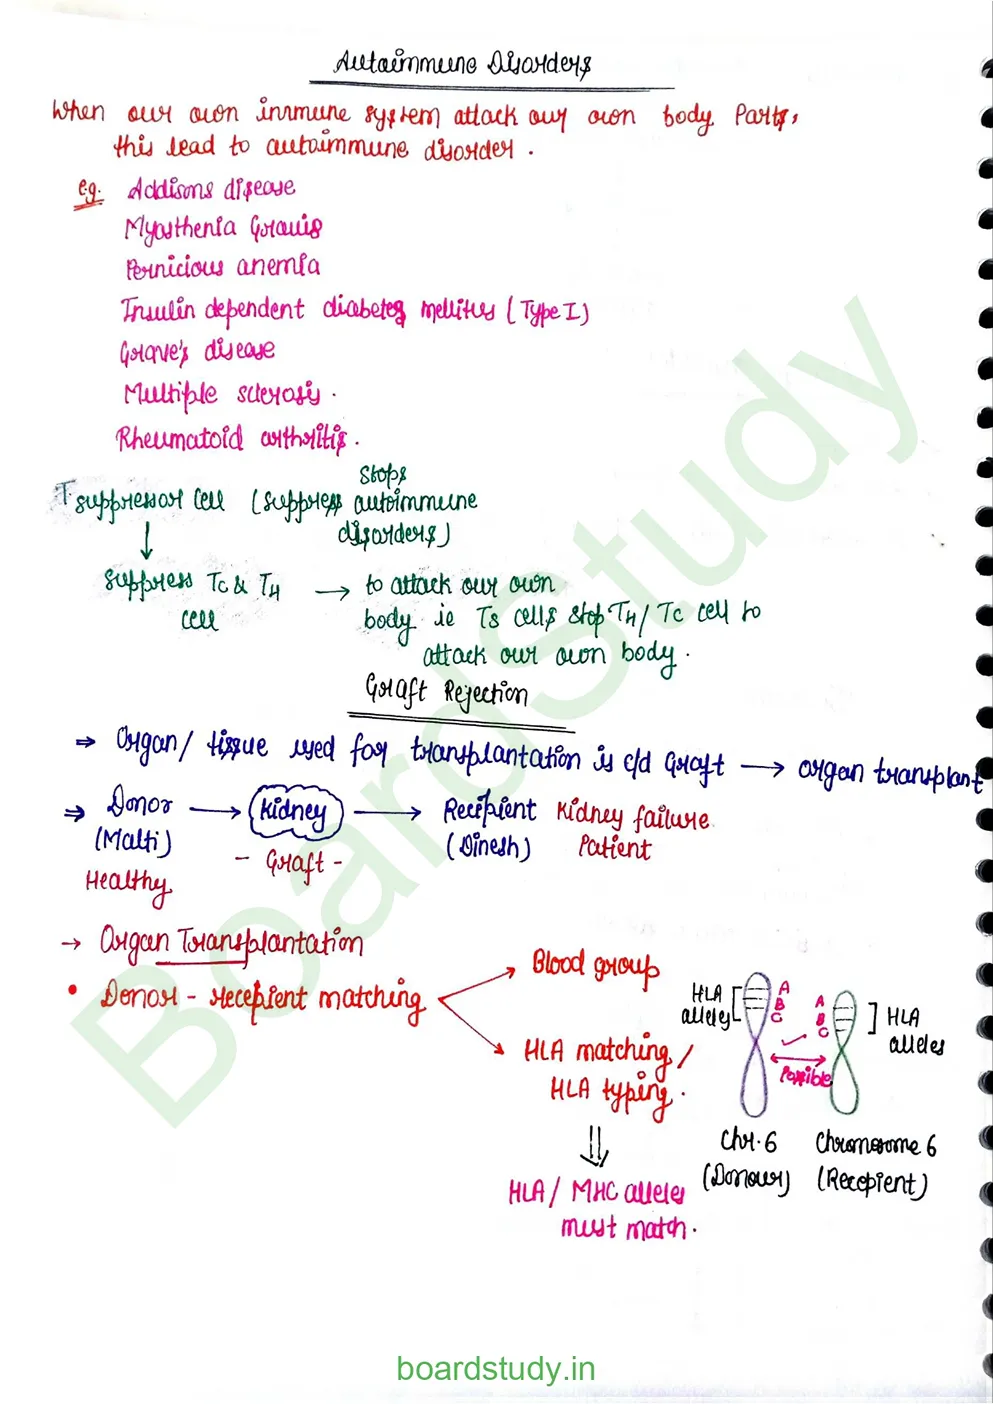 Autoimmune Disorders
When our own immune system attack our own body Parts,
this lead to autoimmune disorder.
e.g. Addisons disease
Myasthenia Gravis
Pernicious anemia
Insulin dependent diabetes mellitus (Type I)
Grave's disease
Multiple sclerosis.
Rheumatoid arthritis.
Stops
T suppressor cell (suppress autoimmune
disorders)
suppress Tc & TH → to attack our own
cell body ie Ts cells stop TH/ Tc cell to
attack our own body.
Graft Rejection
⇒ Organ/ tissue used for transplantation is c/d Graft → organ transplant
⇒ Donor → Kidney → Recipient Kidney failure
(Malti) - Graft - (Dinesh) Patient
Healthy
→ Organ Transplantation
• Donor - recepient matching
Blood group
HLA matching /
HLA typing.
⇓
HLA / MHC alleles
must match.
HLA alleles
A
B
C
A
B
C
HLA
alleles
Possible
Chr.6 Chromosome 6
(Donour) (Recepient)
BoardStudy
boardstudy.in